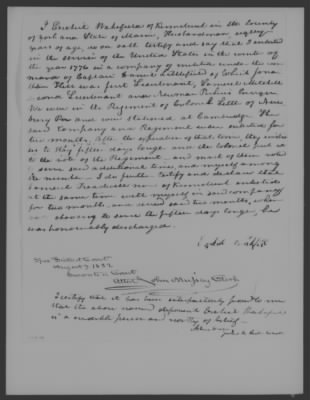 I Ezekiel Wakefield of Kennebunk in the County
of York and State of Maine, Husbandman, eighty
years of age, do on oath certify and say that I enlisted
in the service of the United States in the month of
the year 1776 in a company of militia under the com
mand of Captain Samuel Littlefield of which Jona
than was first Lieutenant, Samuel
second Lieutenant and Ensign
We were in the Regiment of Colonel of New
bury and were stationed at Cambridge. The
said Company and Regiment were enlisted for
two months. After the expiration of that time, they
to stay fifteen days longer and the Colonel put it
to the vote of the Regiment and most of them voted
to serve said additional time, and myself among
the number. I do further certify and declare that
Samuel Treadwell now of Kennebunk enlisted
at the same time with myself in said company
for two months and served said two months, when
not choosing to serve the fifteen days longer, he
was honourably discharged.
Ezekiel
District Court
August 7. 1832
in Court
Attest John Mussey Clerk
I certify that it has been satisfactorily proved to me
that the above named deponent Ezekiel Wakefield
is a credible person and worthy of belief.